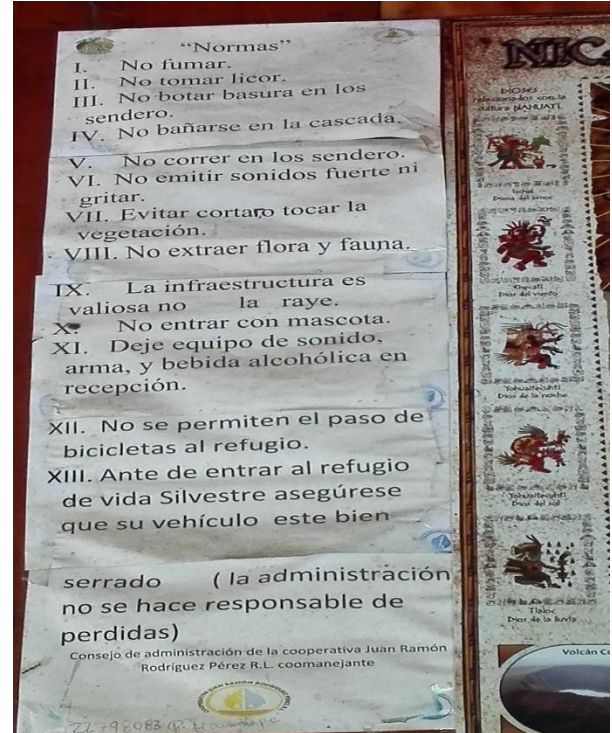 “Normas”
I. No fumar.
II. No tomar licor.
III. No botar basura en los
sendero.
IV. No bañarse en la cascada.
V. No correr en los sendero.
VI. No emitir sonidos fuerte ni
gritar.
VII. Evitar cortaro tocar la
vegetación.
VIII. No extraer flora y fauna.
IX. La infraestructura es
valiosa no la raye.
X. No entrar con mascota.
XI. Deje equipo de sonido,
arma, y bebida alcohólica en
recepción.
XII. No se permiten el paso de
bicicletas al refugio.
XIII. Ante de entrar al refugio
de vida Silvestre asegúrese
que su vehículo este bien
serrado ( la administración
no se hace responsable de
perdidas)
Consejo de administración de la cooperativa Juan Ramón
Rodríguez Pérez R.L. coomanejante
22798083
NICA
DIOSES
relacionados con la
cultura NAHUATL
Diosa del amor
Dios del viento
Dios de la noche
Dios del sol
Tlaloc
Dios de la lluvia
Volcán Co